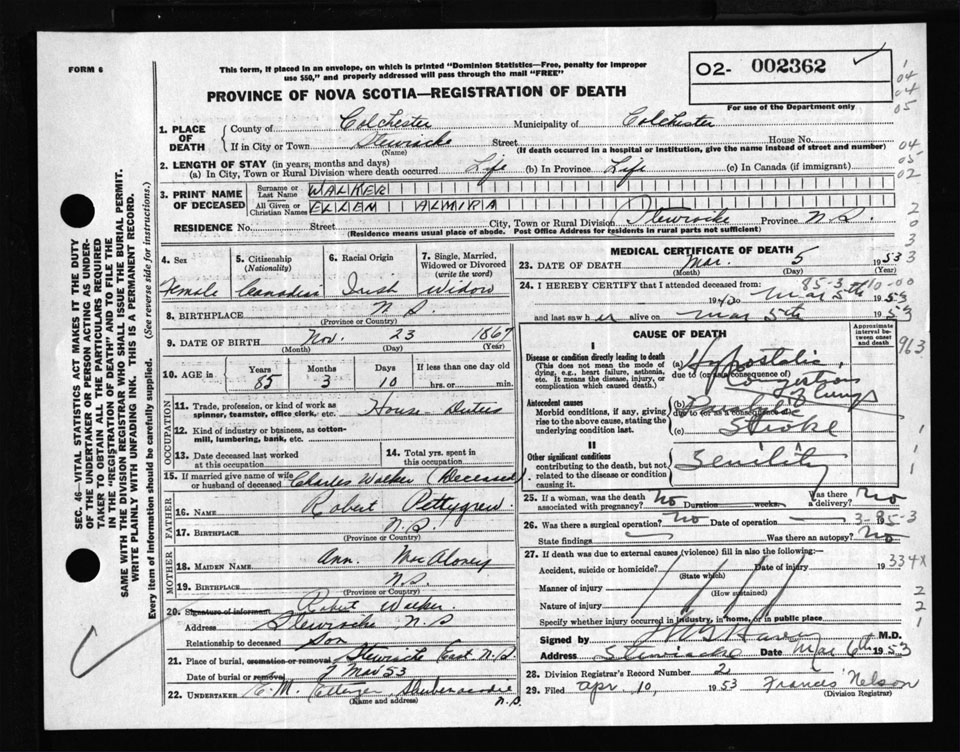 FORM 6
This form, if placed in an envelope, on which is printed "Dominion Statistics—Free, penalty for improper
use $50," and properly addressed will pass through the mail "FREE"
O2- 002362
For use of the Department only
PROVINCE OF NOVA SCOTIA—REGISTRATION OF DEATH
1. PLACE OF DEATH
County of Colchester Municipality of Colchester
If in City or Town Stewiacke Street House No.
(Name) (If death occurred in a hospital or institution, give the name instead of street and number)
2. LENGTH OF STAY (in years, months and days)
(a) In City, Town or Rural Division where death occurred Life (b) In Province Life (c) In Canada (if immigrant)
3. PRINT NAME OF DECEASED
Surname or Last Name WALKER
All Given or Christian Names ELLEN ALMIRA
RESIDENCE No. Street City, Town or Rural Division Stewiacke Province N.S.
(Residence means usual place of abode. Post Office Address for residents in rural parts not sufficient)
4. Sex
Female
5. Citizenship
(Nationality)
Canadian
6. Racial Origin
Irish
7. Single, Married,
Widowed or Divorced
(write the word)
Widow
8. BIRTHPLACE N S
(Province or Country)
9. DATE OF BIRTH Nov. 23 1867
(Month) (Day) (Year)
10. AGE in Years Months Days If less than one day
85 3 10 hrs. or min.
OCCUPATION
11. Trade, profession, or kind of work as
spinner, teamster, office clerk, etc. House Duties
12. Kind of industry or business, as cotton-
mill, lumbering, bank, etc.
13. Date deceased last worked
at this occupation
14. Total yrs. spent in
this occupation
15. If married give name of wife
or husband of deceased Charles Walker (Deceased)
FATHER
16. Name Robert Pettygrew
17. Birthplace N.S.
(Province or Country)
MOTHER
18. Maiden Name Ann. MacAloney
19. Birthplace N.S.
(Province or Country)
20. Signature of informant Robert Walker.
Address Stewiacke N.S
Relationship to deceased Son
21. Place of burial, cremation or removal Stewiacke East N.S.
Date of burial or removal 7 Mar 53
22. UNDERTAKER E. M. Ettinger Shubenacadie
(Name and address) N.S.
MEDICAL CERTIFICATE OF DEATH
23. DATE OF DEATH Mar. 5 1953
(Month) (Day) (Year)
24. I HEREBY CERTIFY that I attended deceased from:
85-3-10-00
1940 to Mar 5th 1953
and last saw her alive on Mar 5th 1953
CAUSE OF DEATH
Approximate
interval
between onset
and death
I
Disease or condition directly leading to death
(This does not mean the mode
of dying, e.g., heart failure, asthenia,
etc. It means the disease, injury, or
complication which caused death.
(a) Hypostatic
due to (or as a consequence of)
Congestion of Lungs
Antecedent causes
Morbid conditions, if any, giving
rise to the above cause, stating the
underlying condition last.
(b)
due to (or as a consequence of)
(c) Stroke
II
Other significant conditions
contributing to the death, but not
related to the disease or condition
causing it.
Senility
25. If a woman, was the death
associated with pregnancy? No Duration weeks. Was there
a delivery? No
26. Was there a surgical operation? No Date of operation 3-85-3
State findings Was there an autopsy? No
27. If death was due to external causes (violence) fill in also the following:—
Accident, suicide or homicide? Date of injury 19
(State which)
334X
Manner of injury
(How sustained)
Nature of injury
Specify whether injury occurred in industry, in home, or in public place
Signed by M.D.
Address Stewiacke Date Mar 6th 1953
28. Division Registrar's Record Number 2
29. Filed Apr. 10, 1953 Francis Nelson
(Division Registrar)
SEC. 46—VITAL STATISTICS ACT MAKES IT THE DUTY
OF THE UNDERTAKER OR PERSON ACTING AS UNDER-
TAKER TO OBTAIN ALL THE PARTICULARS REQUIRED
IN THE "REGISTRATION OF DEATH" AND TO FILE THE
SAME WITH THE DIVISION REGISTRAR WHO SHALL ISSUE THE BURIAL PERMIT.
WRITE PLAINLY WITH UNFADING INK. THIS IS A PERMANENT RECORD.
Every item of information should be carefully supplied. (See reverse side for instructions.)
1
04
04
05
04
05
02
2
0
3
3
963
1
1
1
2
2
1